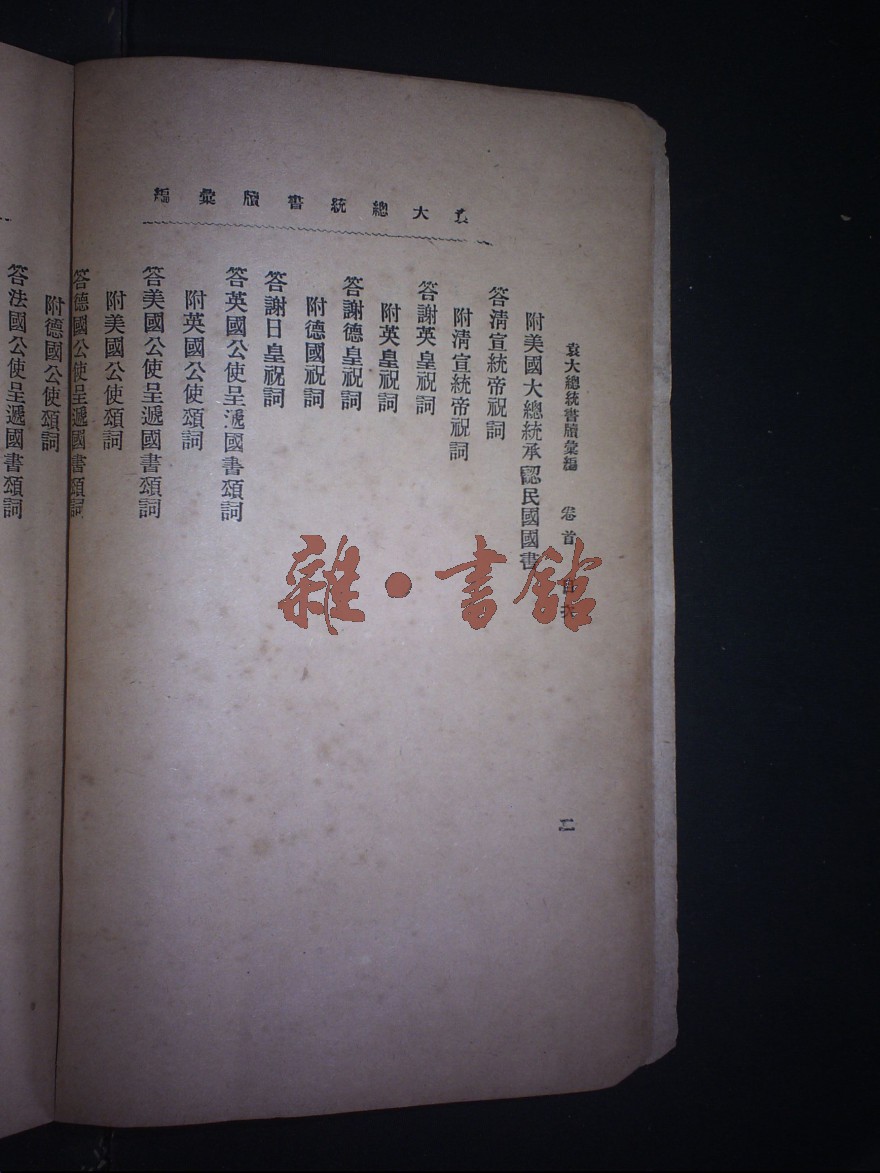 袁大總統書牘彙編
袁大總統書牘彙編 卷首 目次 二
附美國大總統承認民國國書
答清宣統帝祝詞
附清宣統帝祝詞
答謝英皇祝詞
附英皇祝詞
答謝德皇祝詞
附德國祝詞
答謝日皇祝詞
答英國公使呈遞國書頌詞
附英國公使頌詞
答美國公使呈遞國書頌詞
附美國公使頌詞
答德國公使呈遞國書頌詞
附德國公使頌詞
答法國公使呈遞國書頌詞
雜·書館